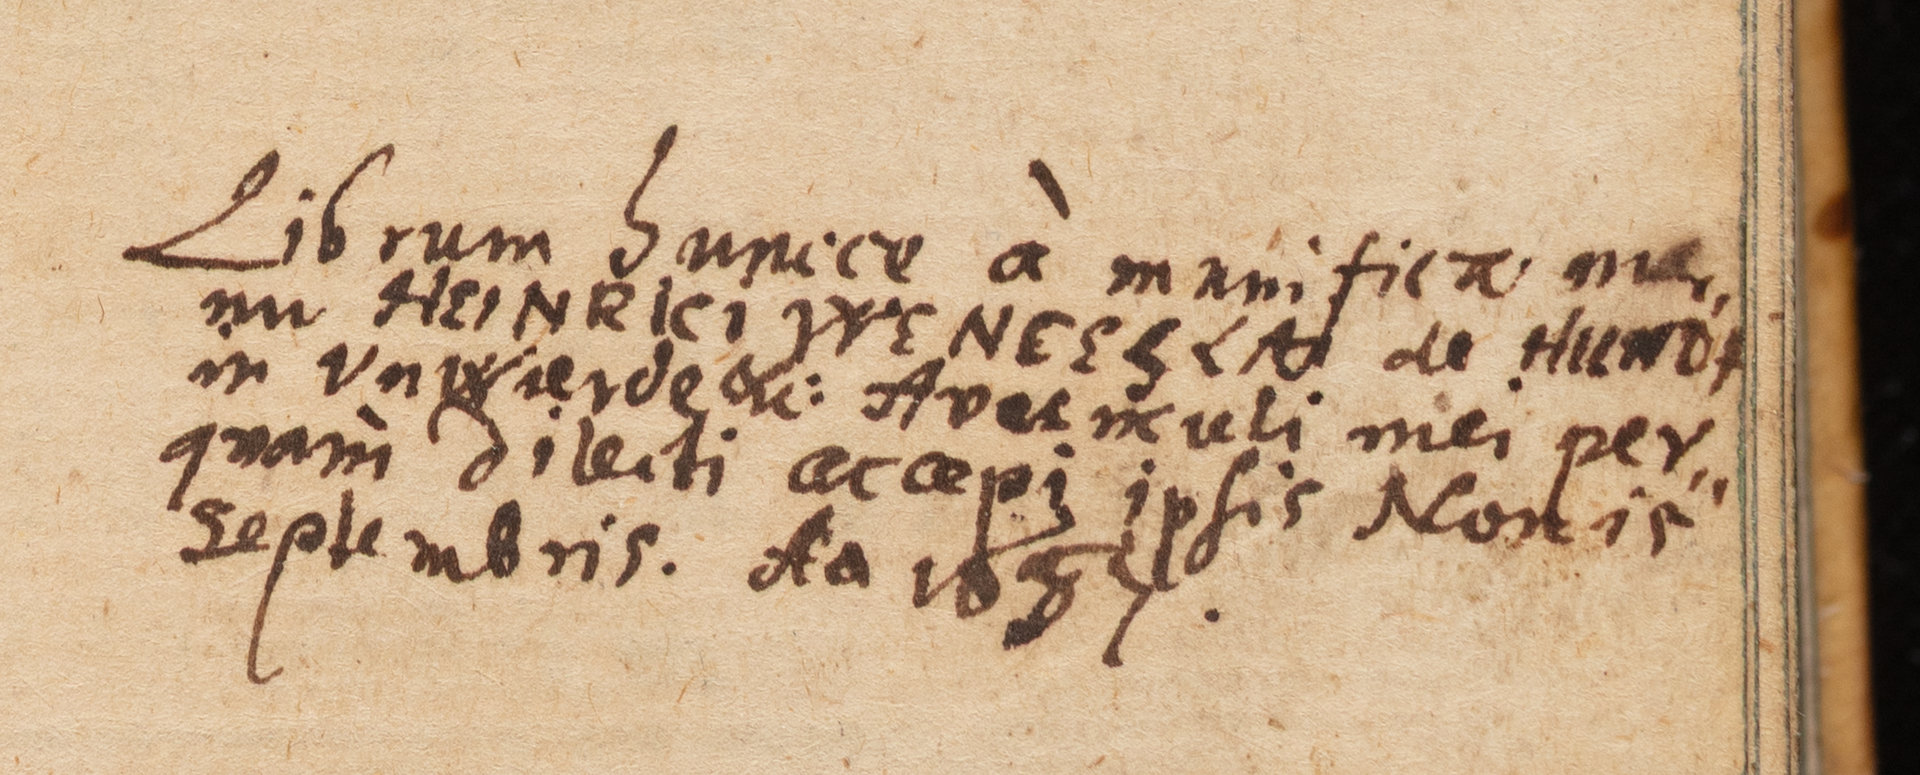 Librum hunce à munifica ma,,
nu HEINRICI WENESSLAI de HUND
in Unwierde &c: Avunculi mei per,,
quam dilecti accepi ipsis Nonis
Septembris. Ao 1637.